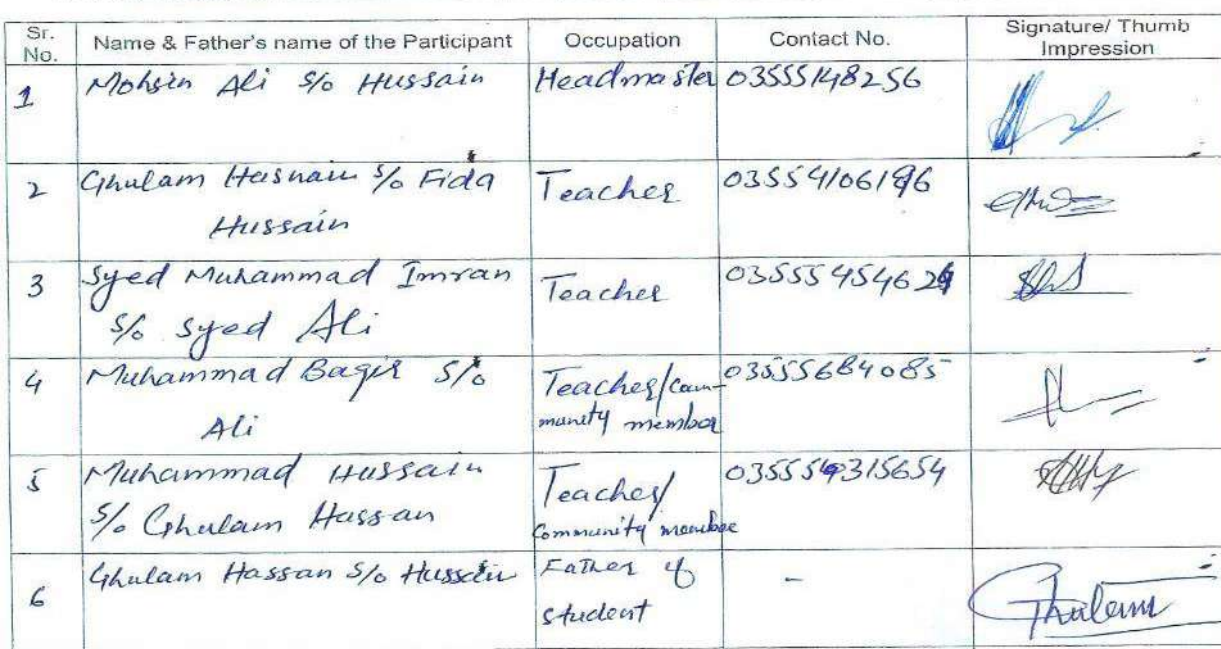 Sr. No. Name & Father's name of the Participant Occupation Contact No. Signature/ Thumb Impression
1 Mohsin Ali S/o Hussain Headmaster 03555148256
2 Ghulam Hasnain S/o Fida Hussain Teacher
3 Syed Muhammad Imran S/o Syed Ali Teacher
4 Muhammad Baqir S/o Ali Teacher/community member 03555684085
5 Muhammad Hussain S/o Ghulam Hassan Teacher/community member
6 Ghulam Hassan S/o Hussain Father of student - Ghulam